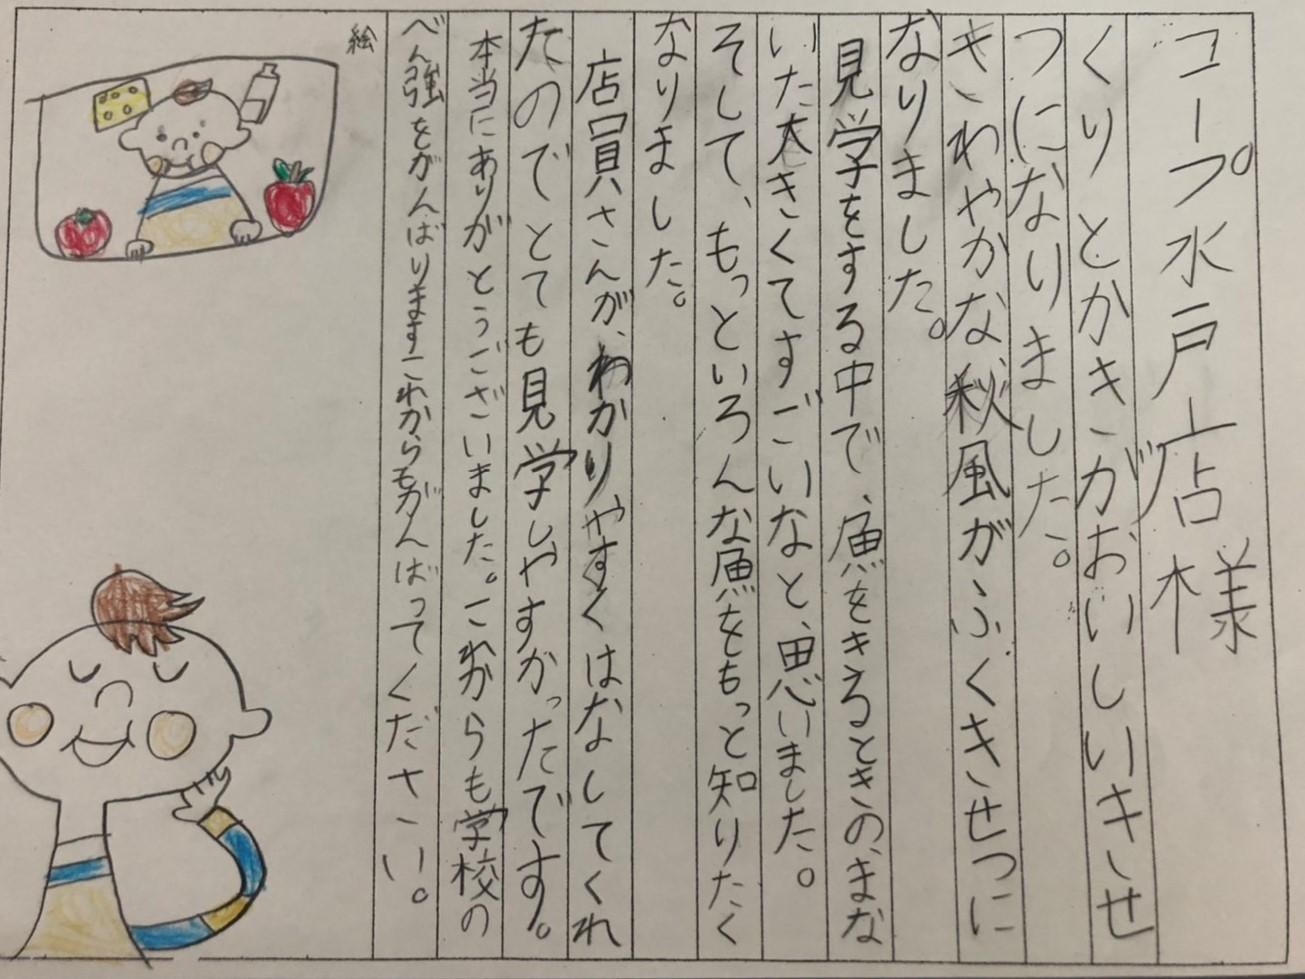 コープ水戸店様
くりとかきがおいしいキせ
つになりました。
さわやかな秋風がふくきせつに
なりました。
見学をする中で、魚をきるときの、まな
いた大きくてすごいなと、思いました。
そして、もっといろんな魚をもっと知りたく
なりました。
店員さんが、わかりやすくはなしてくれ
たのでとても見学しやすかったです。
本当にありがとうございました。これからも学校の
べん強をがんばりますこれからもがんばってください。
絵